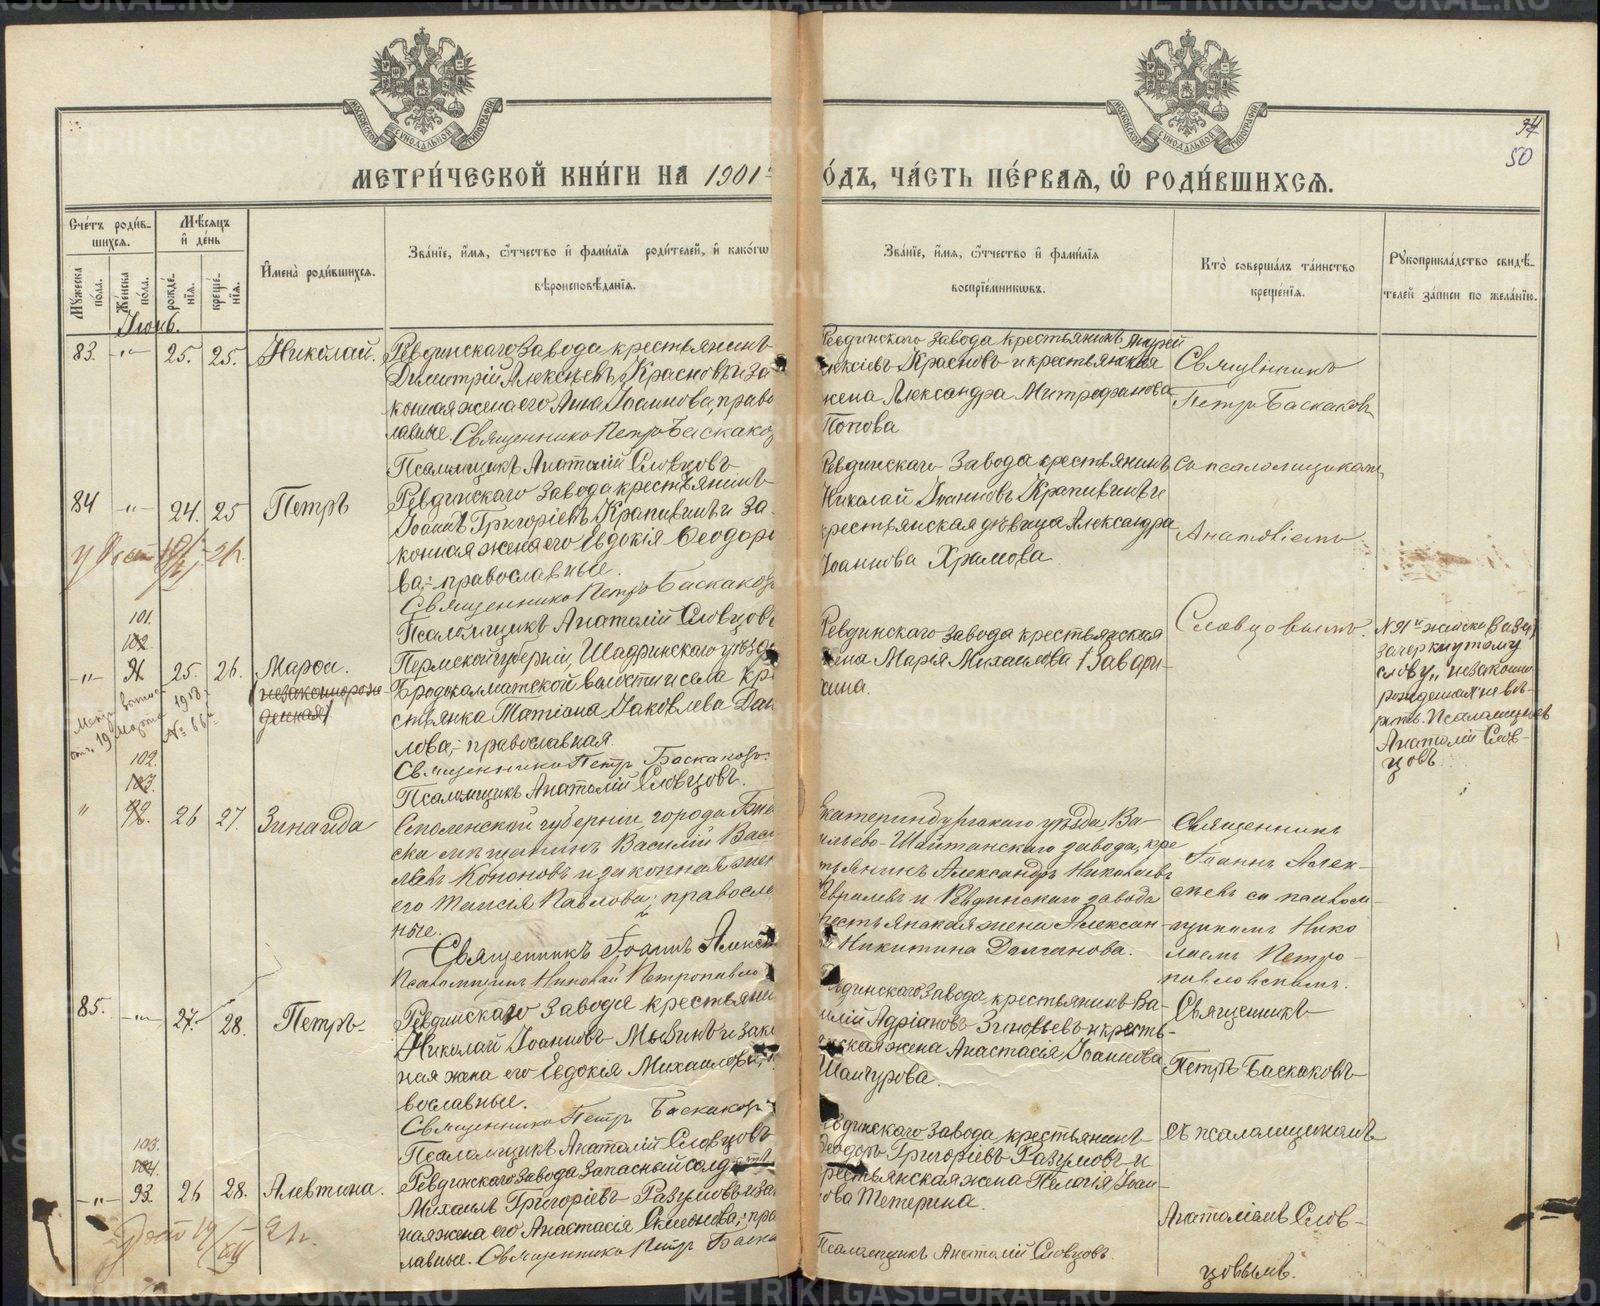 МОСКОВСКОЙ СѴНОДАЛЬНОЙ ТИПОГРАФІИ
МОСКОВСКОЙ СѴНОДАЛЬНОЙ ТИПОГРАФІИ
94
50
МЕТРИ́ЧЕСКОЙ КНИ́ГИ НА 1901
О́ДЪ, ЧА́СТЬ ПЕ́РВАЯ, Ѡ҆ РОДИ́ВШИХСЯ.
Сче́тъ роди́в-
шихся.
Мѣ́сяцъ
и҆ де́нь
Му́жеска по́ла.
Же́нска по́ла.
рожде́нїя.
креще́нїя.
И҆мена̀ роди́вшихся.
Зва́нїе, и҆́мя, ѻ҆́тчество и҆ фами́лїя роди́телей, и҆ како́гѡ
вѣроисповѣ́данїя.
Зва́нїе, и҆́мя, ѻ҆́тчество и҆ фами́лїя
воспрїе́мникѡвъ.
Кто̀ соверша́лъ та́инство
креще́нїя.
Рꙋкоприкла́дство свидѣ́-
телей за́писи по жела́нїю.
Іюнь.
83. -"- 25. 25. Николай.
Ревдинскаго Завода крестьянинъ
Димитрій Алексѣевъ Красновъ и за-
конная жена его Анна Іоаннова, право
лавные. Священникъ Петръ Баскаков
Псаломщикъ Анатолій Словцовъ
Ревдинскаго завода крестьянинъ Андрей
лексіевъ Красновъ и крестьянская
жена Александра Митрофанова
Попова
Священникъ
Петръ Баскаковъ
84 -"- 24. 25 Петръ
Ревдинскаго завода крестьянинъ
Іоаннъ Григоріевъ Крапивинъ и за-
конная жена его Евдокія Ѳеодоро
ва, православные.
Священникъ Петръ Баскаков
Псаломщикъ Анатолій Словцовъ
Ревдинскаго Завода крестьянинъ
Николай Іоанновъ Крапивинъ и
крестьянская дѣвица Александра
Іоаннова Храмова
съ псаломщикомъ
Анатоліемъ
101.
102.
-"- 91. 25. 26. Марѳа.
(незаконнорож-
денная)
1918 г.
19 Марта № 66
Пермской губерніи, Шадринскаго уѣзда
Бродокалматской волости и села кре
стьянка Татіана Іаковлева Дани
лова, православная.
Священникъ Петръ Баскаковъ.
Псаломщикъ Анатолій Словцовъ.
Ревдинскаго завода крестьянская
жена Марія Михаилова Завари-
хина.
Словцовымъ.
№ 91й женска
зачеркнутому
слову „незаконно
рожденная не вѣ-
рить. Псаломщикъ
Анатолій Слов-
цовъ
102.
103.
" 92. 26 27. Зинаида
Смоленской губерніи города
ска мѣщанинъ Василій Васи
льевъ Кононовъ и законная жен
его Таисія Павлова; православ
ные.
Священникъ Іоаннъ Алексѣ
Псаломщикъ Николай Петропавло
Екатеринбургскаго уѣзда, Ва-
сильево-Шайтанскаго завода, кре
стьянинъ Александръ Николаевъ
и Ревдинскаго завода
крестьянская жена Алексан-
Никитина Долганова.
Священникъ
Іоаннъ Алек-
сѣевъ съ псалом-
щикомъ Нико
лаемъ Петро-
павловскимъ.
85. -"- 27. 28. Петръ
Ревдинскаго Завода крестьяни
Николай Іоанновъ Мызинъ и зако
ная жена его Евдокія Михаилова,
вославные.
Священникъ Петръ Баскаков
Псаломщикъ Анатолій Словцовъ
единскаго Завода крестьянинъ Ва-
илій Адріановъ Зиновьевъ и кресть-
янская жена Анастасія Іоаннова
Шангурова.
Священникъ
Петръ Баскаковъ
103.
104.
-"- 93. 26 28. Алевтина.
Ревдинскаго Завода Запасный солдатъ
Михаилъ Григоріевъ Разумовъ и за
ная жена его Анастасія Симеонова, пра
лавные. Священникъ Петръ Баска
единскаго Завода крестьянинъ
Ѳеодоръ Григоріевъ Разумовъ и
крестьянская жена Пелагія Іоан-
ова Тетерина.
Псаломщикъ Анатолій Словцовъ.
съ псаломщикомъ
Анатоліемъ Слов-
цовымъ.
METRIKI.GASO-URAL.RU